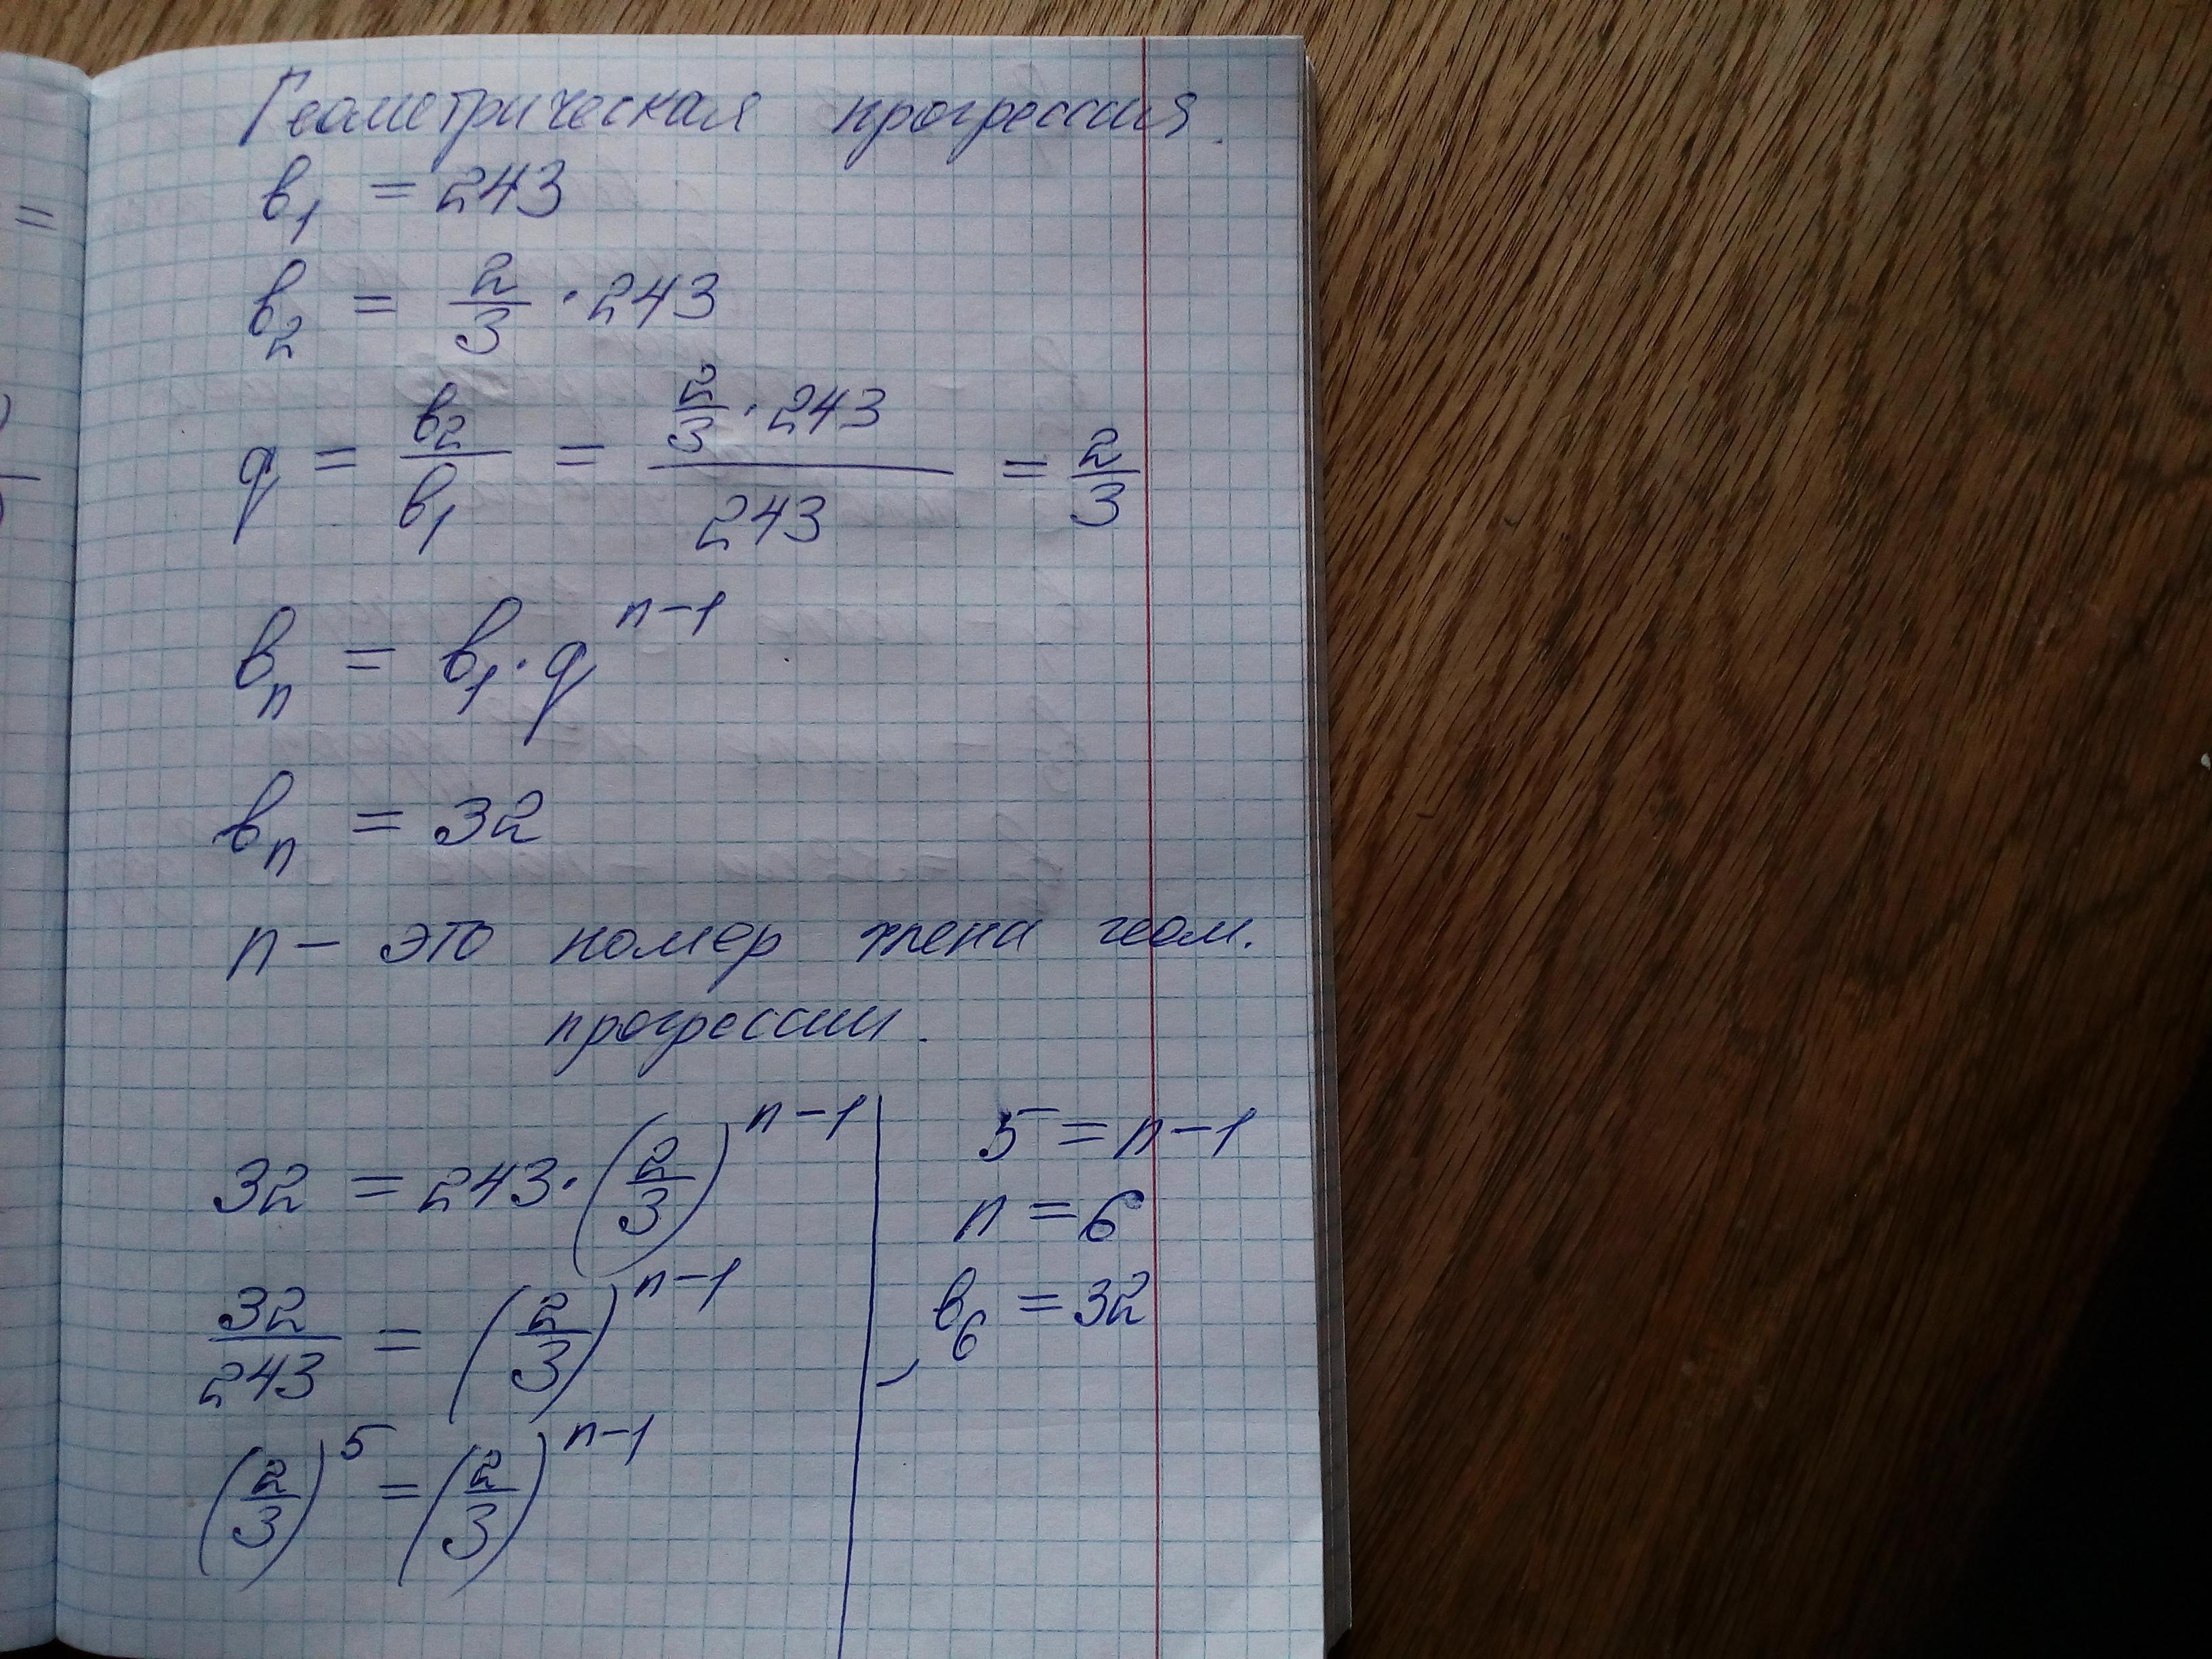 Геометрическая прогрессия.
b₁ = 243
b₂ = 2/3 · 243
q = b₂/b₁ = (2/3 · 243)/243 = 2/3
bₙ = b₁ · q^(n-1)
bₙ = 32
n - это номер члена геом.
прогрессии.
32 = 243 · (2/3)^(n-1)
32/243 = (2/3)^(n-1)
(2/3)^5 = (2/3)^(n-1)
5 = n-1
n = 6
b₆ = 32